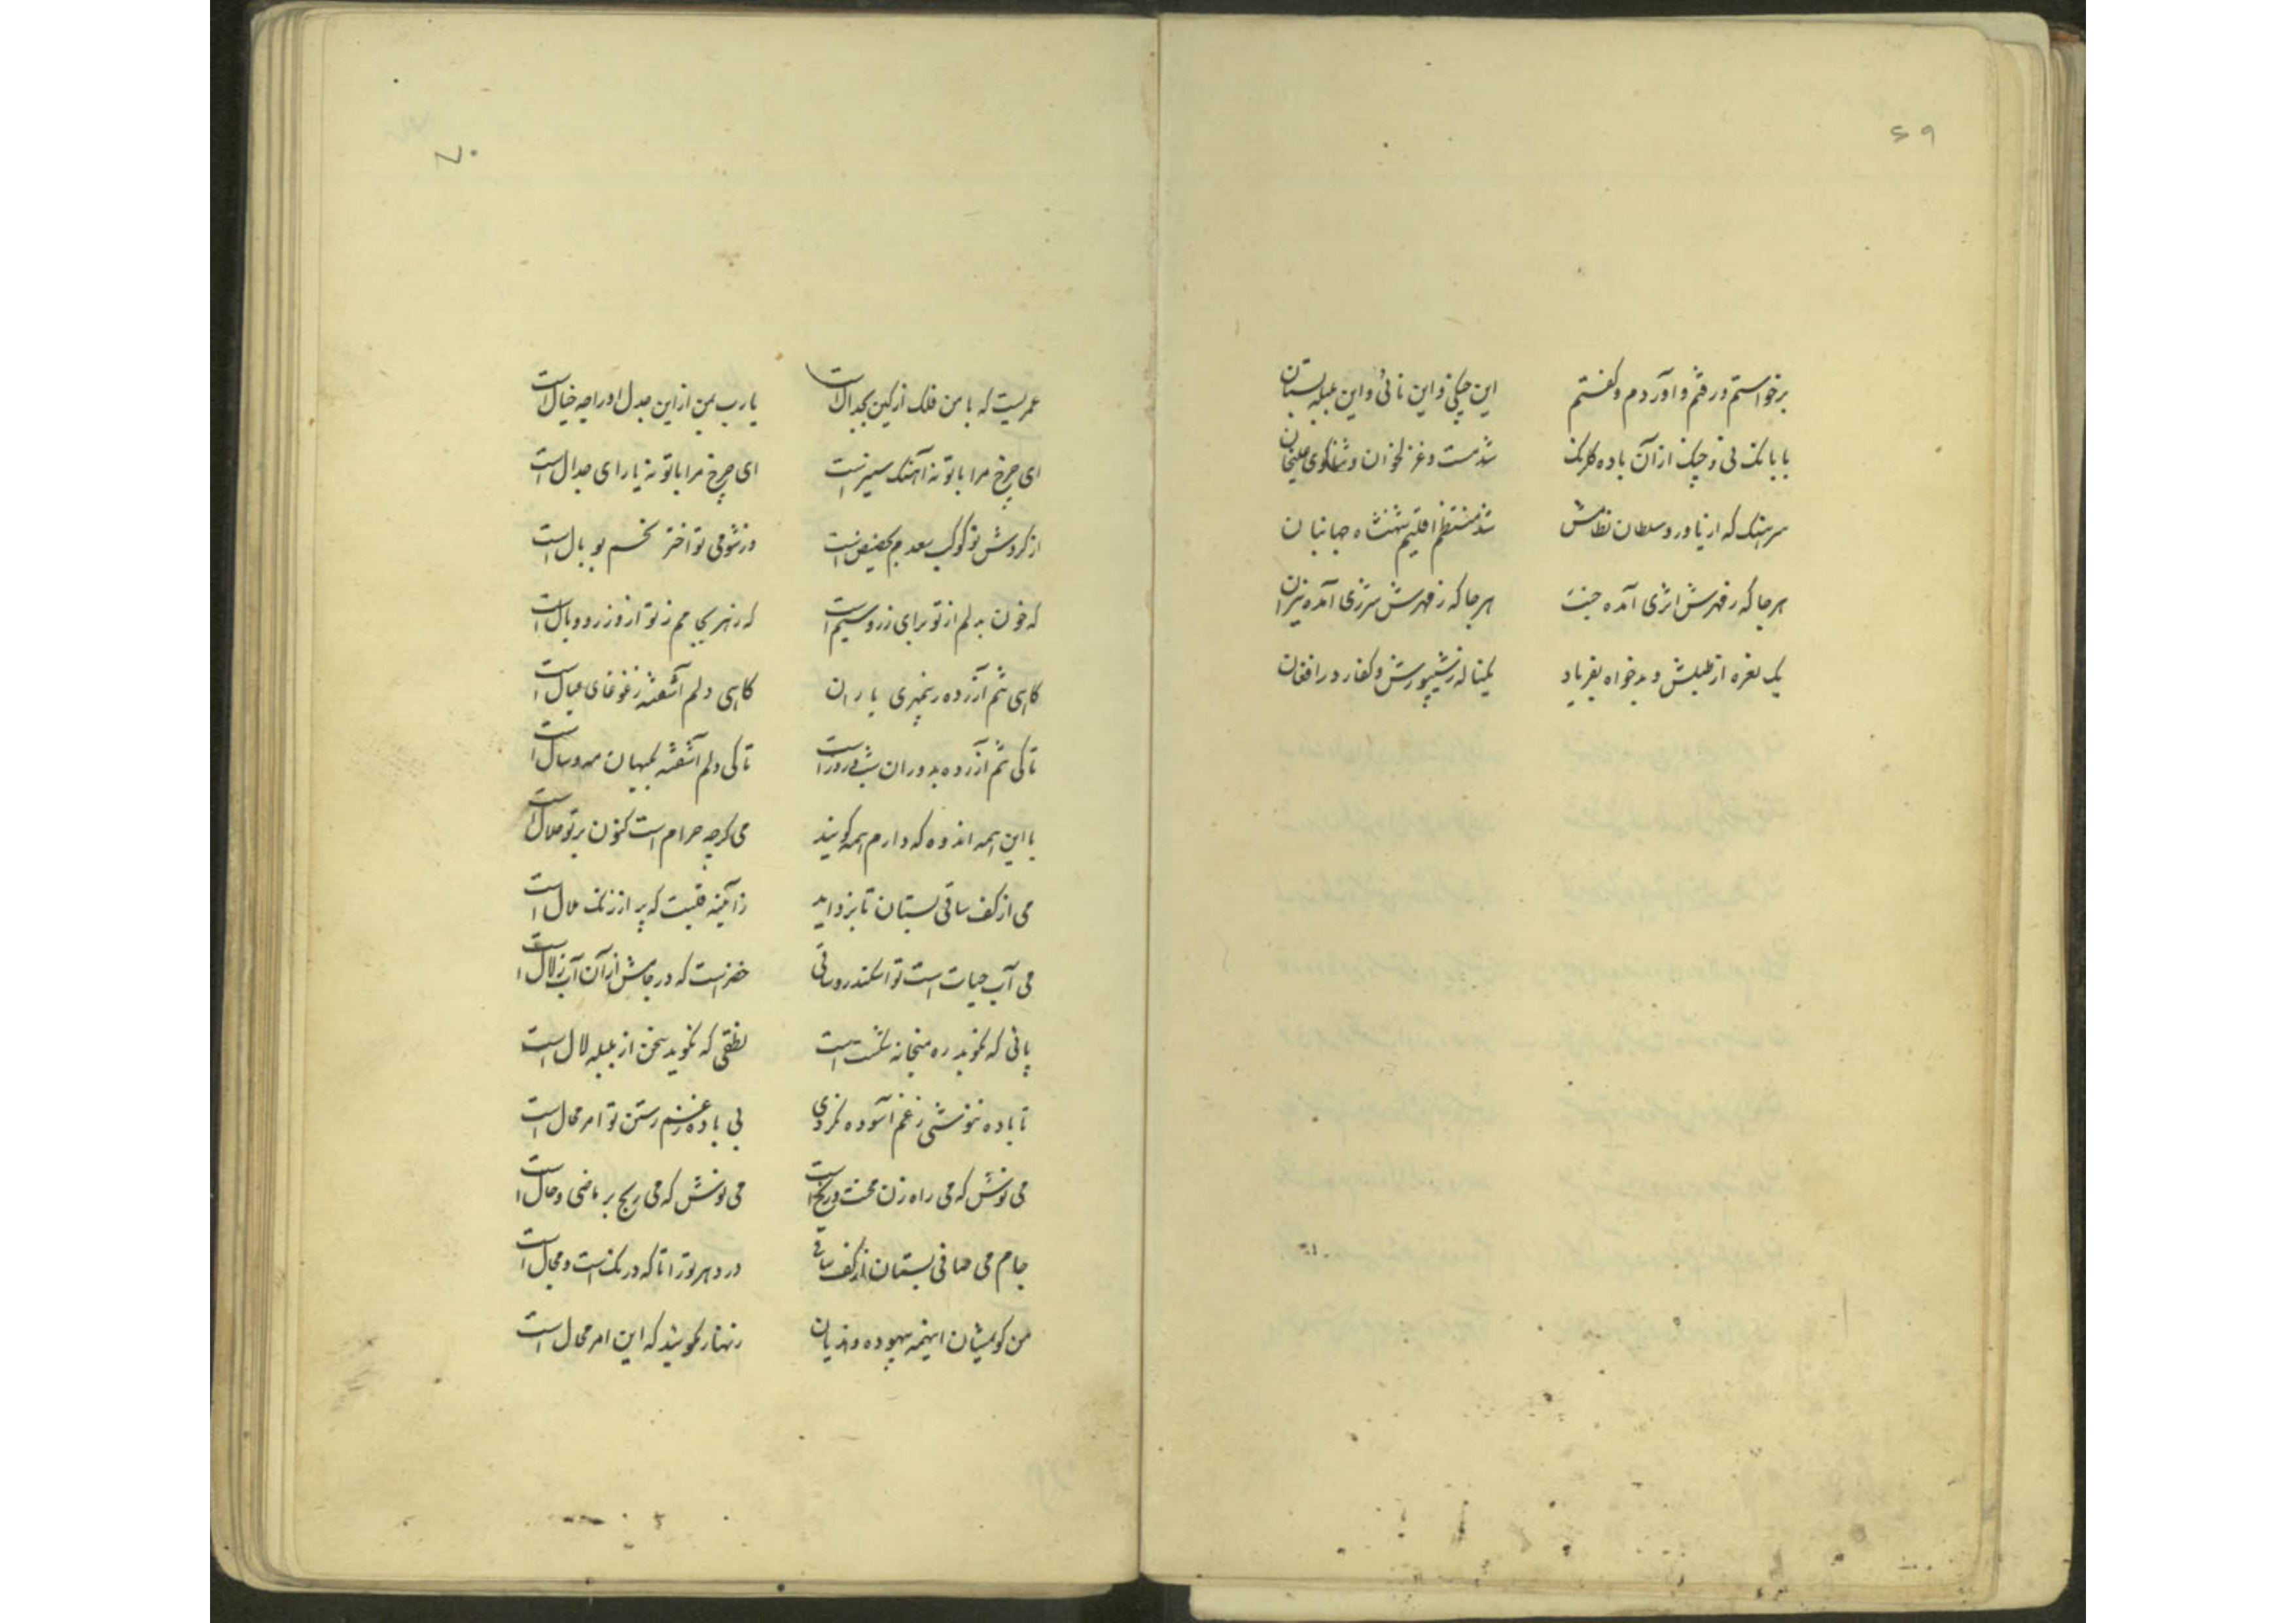 ۶۹
برخواستم و رفتم و آوردم و گفتم این چنگی و این نائی و این بلبل بستان
با بانک نی و چنک از آن باده گلرنک شد مست و غزلخوان و ثناگوی
سرهنک که از یاور و سلطان نظامش شد منتظم اقلیم شهنشاه جهانبان
هر جا که ز مهرش اثری آمده جنت هر جا که ز قهرش شرری آمده نیران
یک نعره از طبلش و بدخواه بفریاد یکناله ز شیپورش و کفار در افغان
۷۰
عمریست که با من فلک از کین بجدال است یا رب بمن از این جدل او را چه خیال است
ای چرخ مرا با تو نه آهنک ستیز است ای چرخ مرا با تو نه یارای جدال است
از گردش تو کوکب سعدم بحضیض است وز شومی تو اختر نحسم بوبال است
که خون بدلم از تو برای زر و سیم است که رنهریکی مم ز تو از وزر و وبال است
گاهی تنم آزرده ز یاران گاهی دلم آشفته ز غوغای عیال است
تا کی تنم آزرده بدوران شب و روز است تا کی دلم آشفته بکیهان مه و سال است
با این همه اندوه که دارم همه گویند می گرچه حرام است کنون بر تو حلال است
می از کف ساقی بستان تا بزداید ز آئینه قلبت که پر از زنک ملال است
می آب حیات است تو اسکندر و ساقی خضر است که در جامش از آن آب زلال است
پائی که نپوید ره میخانه شکست است نطقی که نگوید سخن از بلبله لال است
تا باده ننوشی ز غم آسوده نگردی بی باده ز غم رستن تو امر محال است
می نوش که می راه زن محنت و رنج است می نوش که می بر ماضی و حال است
جام می صافی بستان از کف ساقی در دهر تو را تا که درنک است و مجال است
من گویمشان اینهمه بیهوده و هذیان زنهار نگویید که این امر محال است